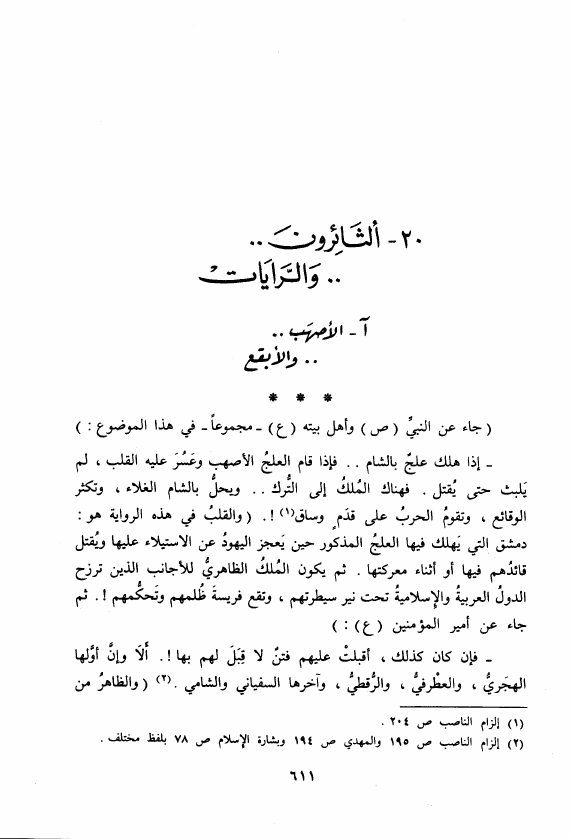 ٢٠- ألثَّائِرونَ ..
.. والرَّاياتْ
آ - الأصهَب ..
.. والأبقع
* * *
( جاء عن النبيِّ ( ص ) وأهل بيته ( ع ) - مجموعاً - في هذا الموضوع : )
- إذا هلك علجٌ بالشام .. فإذا قام العلجُ الأصهب وعَسُرَ عليه القلب ، لم
يَلبث حتى يُقتل . فهناك المُلكُ إلى التُّرك .. ويحلُّ بالشام الغلاء ، وتكثر
الوقائع ، وتقومُ الحربُ على قدَمٍ وساق(١) ! . ( والقلبُ في هذه الرواية هو :
دمشق التي يَهلك فيها العلجُ المذكور حين يَعجز اليهودُ عن الاستيلاء عليها ويُقتل
قائدُهم فيها أو أثناء معركتها . ثم يكون المُلك الظاهريُّ للأجانب الذين ترزح
الدولُ العربيةُ والإسلاميةُ تحت نير سيطرتهم ، وتقع فريسةَ ظُلمهم وتَحكُّمهم ! . ثم
جاء عن أمير المؤمنين ( ع ) : )
- فإن كان كذلك ، أقبلتْ عليهم فتنٌ لا قِبَلَ لهم بها ! . ألَا وإنَّ أوَّلها
الهجَريُّ ، والعطْرفيُّ ، والرُّقطيُّ ، وآخرها السفياني والشامي .(٢) ( والظاهرُ من
(١) إلزام الناصب ص ٢٠٤ .
(٢) إلزام الناصب ص ١٩٥ والمهدي ص ١٩٤ وبشارة الإسلام ص ٧٨ بلفظ مختلف .
٦١١